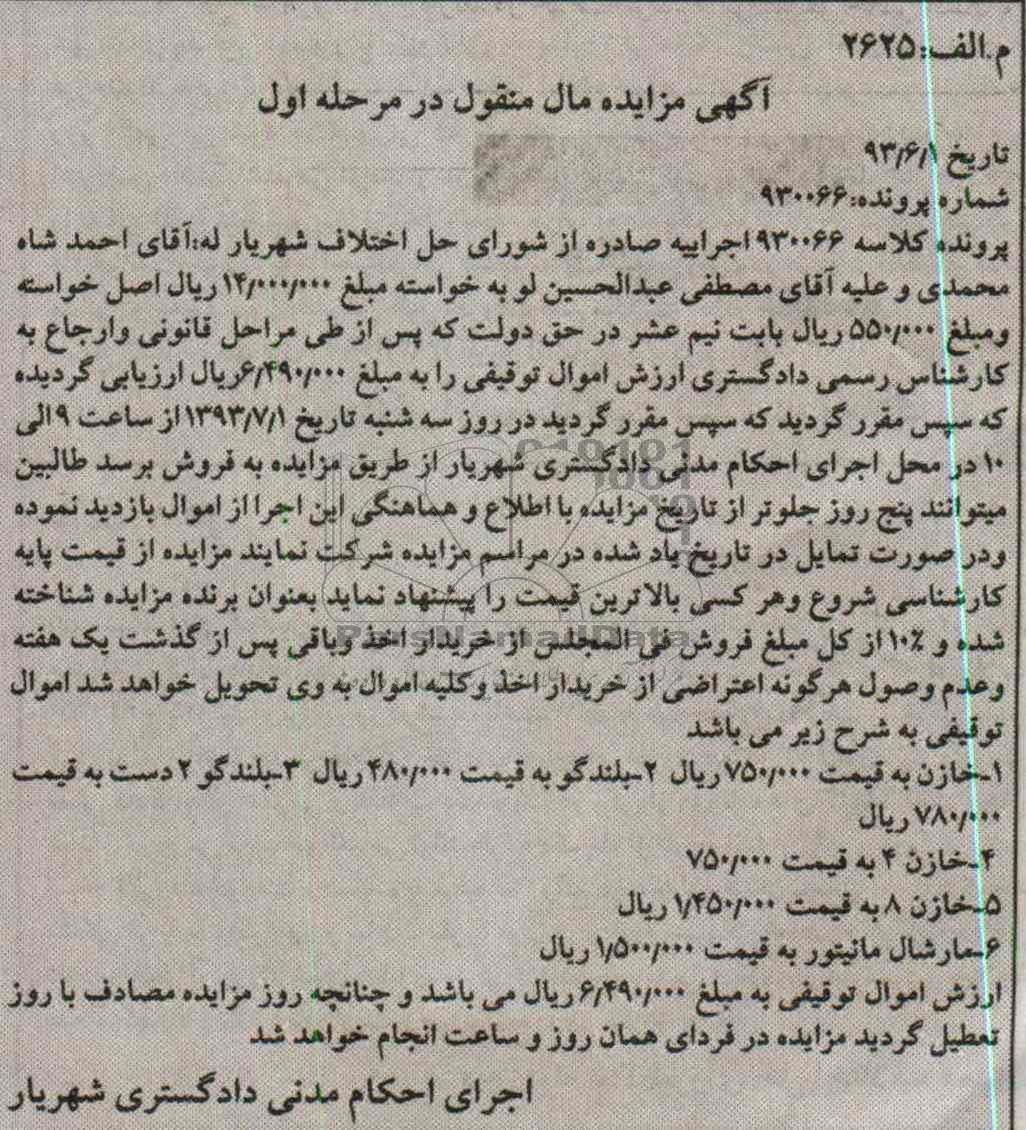 م.الف:۲۶۲۵
آگهی مزایده مال منقول در مرحله اول
تاریخ ۹۳/۶/۱
شماره پرونده:۹۳۰۰۶۶
پرونده کلاسه ۹۳۰۰۶۶ اجراییه صادره از شورای حل اختلاف شهریار له:آقای احمد شاه
محمدی و علیه آقای مصطفی عبدالحسین لو به خواسته مبلغ ۱۴/۰۰۰/۰۰۰ ریال اصل خواسته
ومبلغ ۵۵۰/۰۰۰ ریال بابت نیم عشر در حق دولت که پس از طی مراحل قانونی وارجاع به
کارشناس رسمی دادگستری ارزش اموال توقیفی را به مبلغ ۶/۴۹۰/۰۰۰ریال ارزیابی گردیده
که سپس مقرر گردید که سپس مقرر گردید در روز سه شنبه تاریخ ۱۳۹۳/۷/۱ از ساعت ۹ الی
۱۰ در محل اجرای احکام مدنی دادگستری شهریار از طریق مزایده به فروش برسد طالبین
میتوانند پنج روز جلوتر از تاریخ مزایده با اطلاع و هماهنگی این اجرا از اموال بازدید نموده
ودر صورت تمایل در تاریخ یاد شده در مراسم مزایده شرکت نمایند مزایده از قیمت پایه
کارشناسی شروع وهر کسی بالاترین قیمت را پیشنهاد نماید بعنوان برنده مزایده شناخته
شده و ۱۰٪ از کل مبلغ فروش فی المجلس از خریدار اخذ وباقی پس از گذشت یک هفته
وعدم وصول هرگونه اعتراضی از خریدار اخذ وکلیه اموال به وی تحویل خواهد شد اموال
توقیفی به شرح زیر می باشد
۱-خازن به قیمت ۷۵۰/۰۰۰ ریال ۲-بلندگو به قیمت ۴۸۰/۰۰۰ ریال ۳-بلندگو ۲ دست به قیمت
۷۸۰/۰۰۰ ریال
۴-خازن ۴ به قیمت ۷۵۰/۰۰۰
۵-خازن ۸ به قیمت ۱/۴۵۰/۰۰۰ ریال
۶-مارشال مانیتور به قیمت ۱/۵۰۰/۰۰۰ ریال
ارزش اموال توقیفی به مبلغ ۶/۴۹۰/۰۰۰ ریال می باشد و چنانچه روز مزایده مصادف با روز
تعطیل گردید مزایده در فردای همان روز و ساعت انجام خواهد شد
اجرای احکام مدنی دادگستری شهریار
ParsNamadData